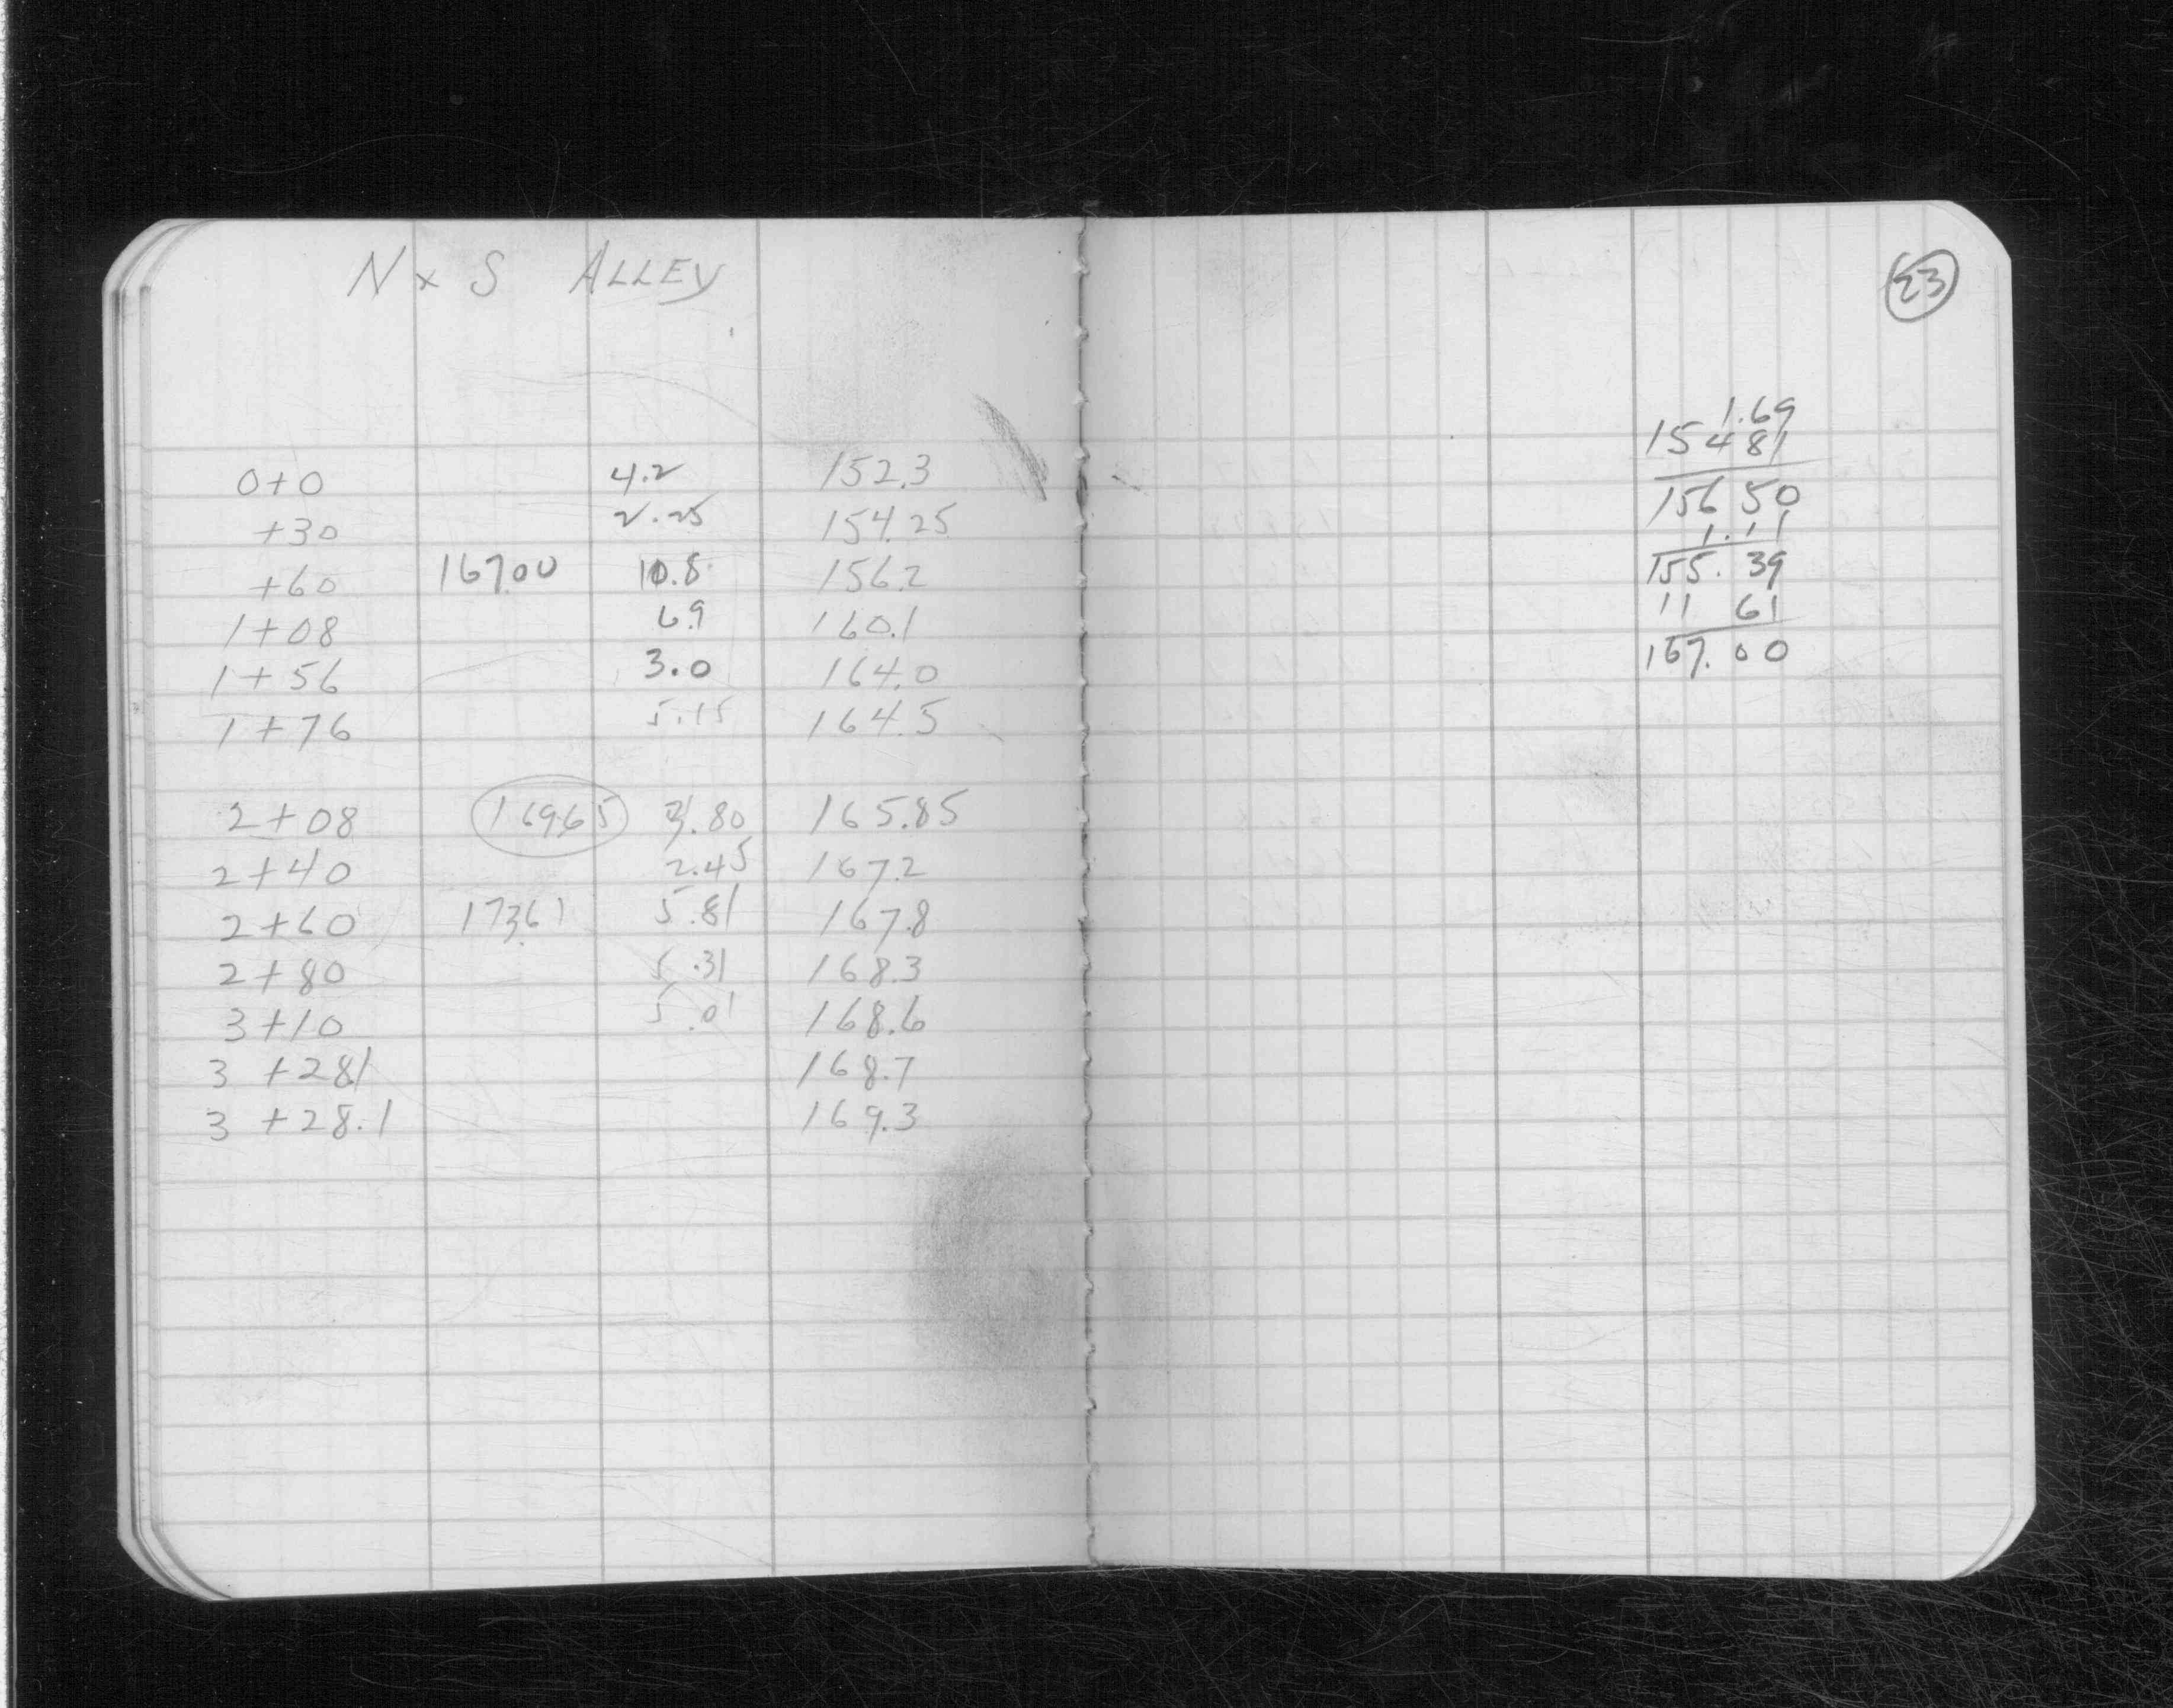 N x S ALLEY
0+0 4.2 152.3
+30 2.25 154.25
+60 167.00 10.8 156.2
1+08 6.9 160.1
1+56 3.0 164.0
1+76 5.15 164.5
2+08 169.65 3.80 165.85
2+40 2.45 167.2
2+60 173.61 5.81 167.8
2+80 5.31 168.3
3+10 5.01 168.6
3 +28.1 168.7
3 +28.1 169.3
23
1.69
154 81
156 50
1.11
155. 39
11 61
167.00